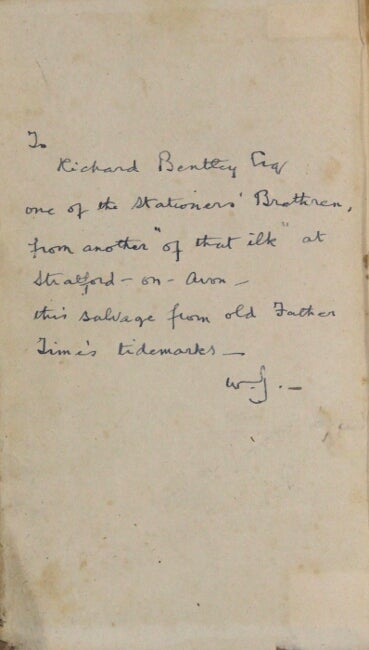 To
Richard Bentley Esq
one of the Stationers' Brethren,
from another "of that ilk" at
Stratford-on-Avon —
this salvage from old Father
Time's tidemarks —
W. J. —